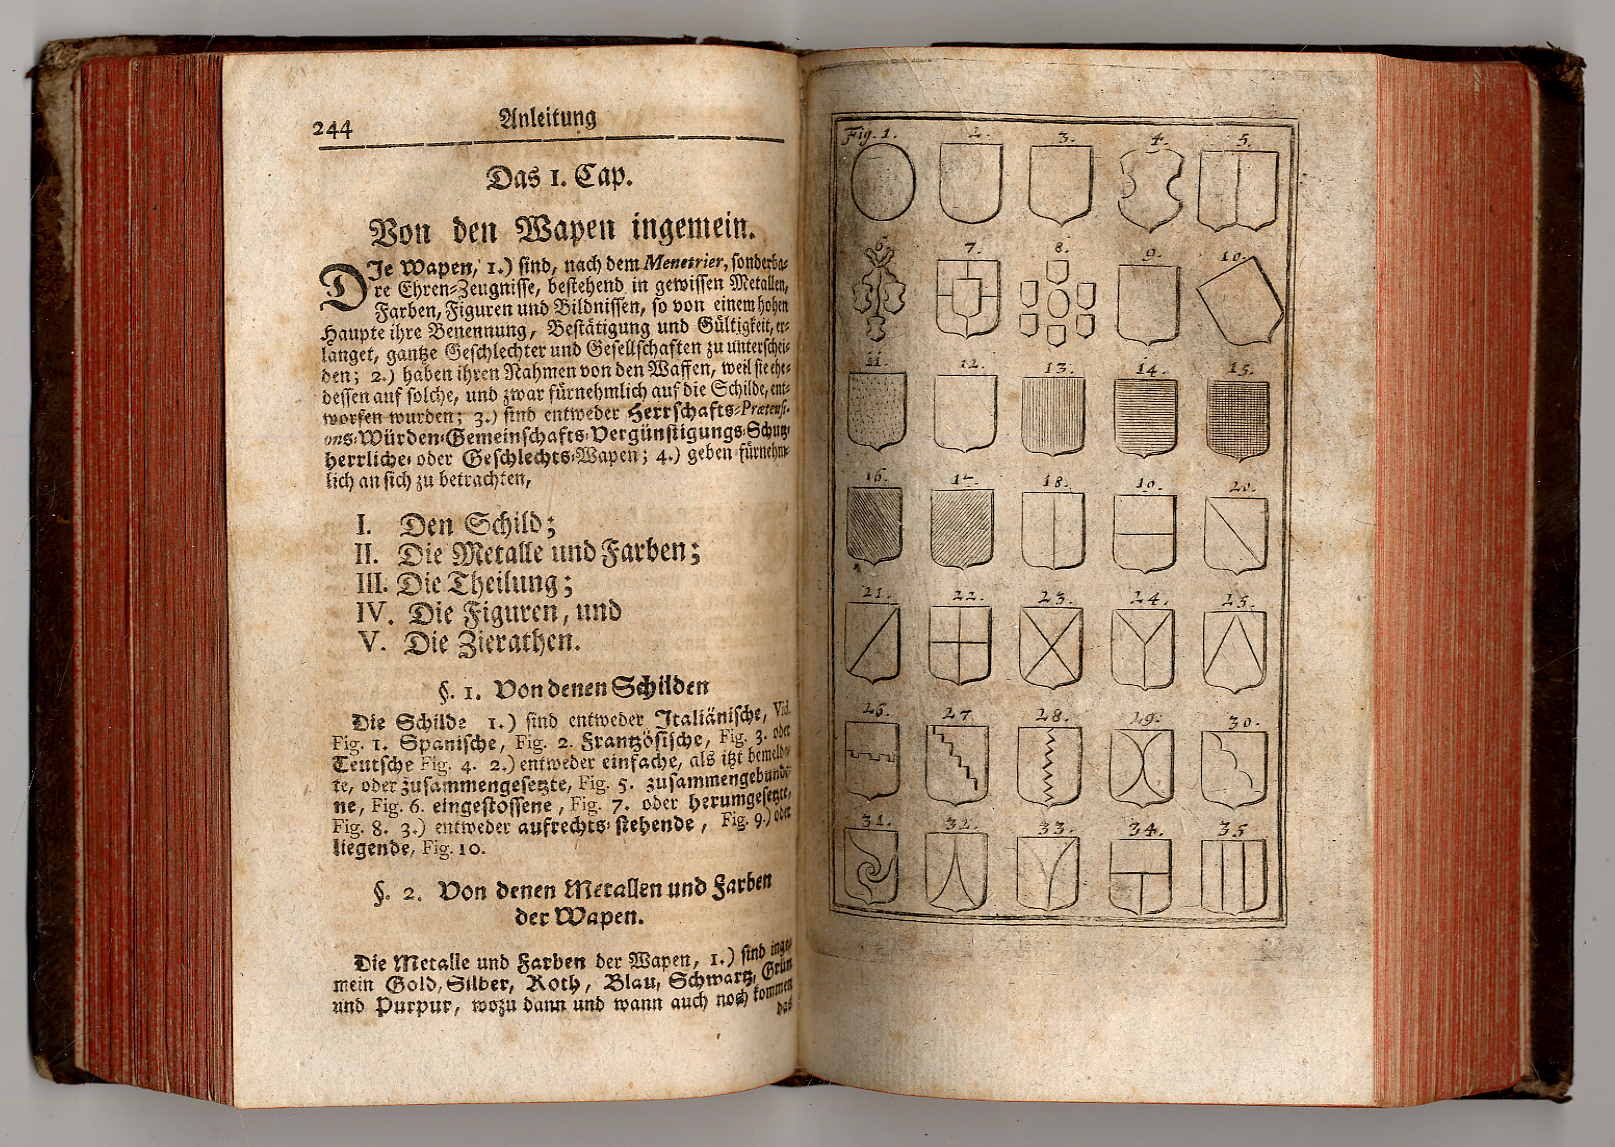 244
Anleitung
Das 1. Cap.
Von den Wapen ingemein.
DJe Wapen, 1.) sind, nach dem Menetrier, sonderba-
re Ehren-Zeugnisse, bestehend in gewissen Metallen,
Farben, Figuren und Bildnissen, so von einem hohen
Haupte ihre Benennung, Bestätigung und Gültigkeit, er-
langet, gantze Geschlechter und Gesellschaften zu unterschei-
den; 2.) haben ihren Nahmen von den Waffen, weil sie ehe-
dessen auf solche, und zwar fürnehmlich auf die Schilde, ent-
worfen wurden; 3.) sind entweder Herrschafts-Prætensi-
ons-Würden-Gemeinschafts-Vergünstigungs-Schutz-
herrliche- oder Geschlechts-Wapen; 4.) geben fürnehm-
lich an sich zu betrachten,
I. Den Schild;
II. Die Metalle und Farben;
III. Die Theilung;
IV. Die Figuren, und
V. Die Zierathen.
§. 1. Von denen Schilden
Die Schilde 1.) sind entweder Italiänische, Vid.
Fig. 1. Spanische, Fig. 2. Frantzösische, Fig. 3. oder
Teutsche Fig. 4. 2.) entweder einfache, als itzt bemeld-
te, oder zusammengesetzte, Fig. 5. zusammengebunde-
ne, Fig. 6. eingestossene, Fig. 7. oder herumgesetzte,
Fig. 8. 3.) entweder aufrechts-stehende, Fig. 9.) oder
liegende, Fig. 10.
§. 2. Von denen Metallen und Farben
der Wapen.
Die Metalle und Farben der Wapen, 1.) sind inge-
mein Gold, Silber, Roth, Blau, Schwartz, Grün
und Purpur, wozu dann und wann auch noch kommen
das
Fig. 1. 2. 3. 4. 5.
6. 7. 8. 9. 10.
11. 12. 13. 14. 15.
16. 17. 18. 19. 20.
21. 22. 23. 24. 25.
26. 27 28. 29. 30.
31. 32. 33. 34. 35